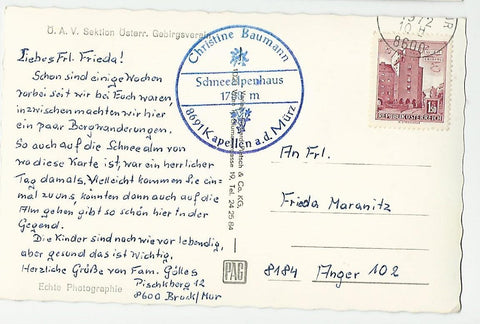 Ö. A. V. Sektion Österr. Gebirgsverein
Liebes Frl. Frieda!
Schon sind einige Wochen
vorbei seit wir bei Euch waren,
inzwischen machten wir hier
ein paar Bergwanderungen.
So auch auf die Schneealm von
wo diese Karte ist, war ein herrlicher
Tag damals, Vielleicht kommen Sie ein-
mal zu uns, könnten dann auch auf die
Alm gehen gibt so schön hier in der
Gegend.
Die Kinder sind nach wie vor lebendig,
aber gesund das ist wichtig.
Herzliche Grüße von Fam. Gölles
Pischkberg 12
8600 Bruck/Mur
Echte Photographie
Christine Baumann
Schneealpenhaus
m
8691 Kapellen a.d. Mürz
& Co. KG,
19, Tel. 24 25 84
PAG
1972
8600
1.50
REPUBLIK ÖSTERREICH
An Frl.
Frieda Maranitz
8184 Anger 102